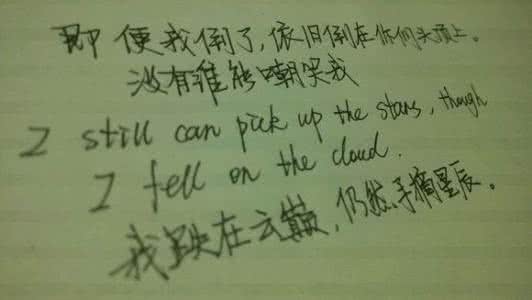 即便我倒了，依旧倒在你们头顶上。
没有谁能嘲笑我
I still can pick up the stars, though
I fell on the cloud.
我跌在云巅，仍然手摘星辰。